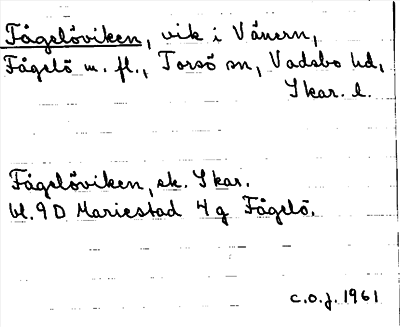 Fågelöviken, vik i Vänern,
Fågelö m. fl., Torsö sn, Vadsbo hd,
Skar. l.
Fågelöviken, ek. Skar.
bl. 9D Mariestad 4g Fågelö.
c.o.j. 1961